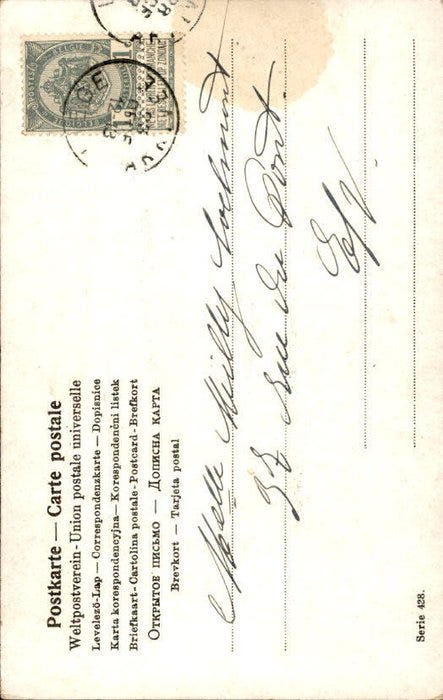 Postkarte — Carte postale
Weltpostverein - Union postale universelle
Levelező-Lap — Correspondenzkarte — Dopisnice
Karta korespondencyjna — Korespondenční listek
Briefkaart - Cartolina postale - Postcard - Brefkort
Открытое письмо — Дописна карта
Brevkort — Tarjeta postal
Melle Milly
37 Rue du Pont
E/V.
Serie 428.
BELGIE
1